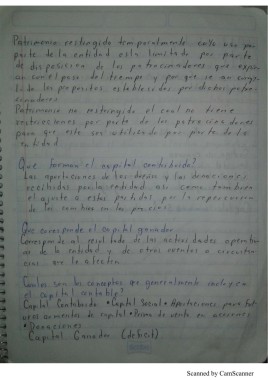 Patrimonio restringido temporalmente cuyo uso por
parte de la entidad esta limitado por parte
de disposicion de los patrocinadores que expiran
con el paso del tiempo y por que se an cumplido
los propositos establecidos por dichos patrocinadores.
Patrimonio no restringido el cual no tiene
restricciones por parte de los patrocinadores
para que este sea utilizado por parte de la
entidad
Que forman el capital contribuido?
Las aportaciones de los dueños y las donaciones
recibidas por la entidad asi como tambien
el ajuste a estas partidas por la repercusion
de los cambios en los precios
Que corresponde el capital ganado
Corresponde al resultado de las actividades operativas
de la entidad y de otros eventos o circunstancias
que le afectan
Cuales son los conceptos que generalmente incluyen
el capital contable?
Capital Contribuido • Capital Social • Aportaciones para futuros
aumentos de capital • Prima de venta en acciones
• Donaciones
Capital Ganado (deficit)
Scanned by CamScanner